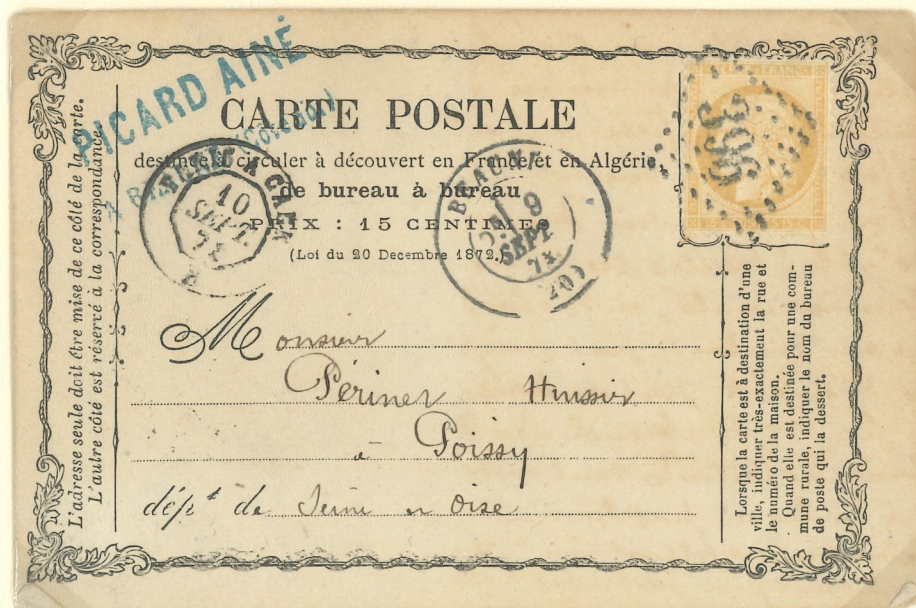 RICARD AINÉ
CARTE POSTALE
destinée à circuler à découvert en France et en Algérie,
de bureau à bureau
PRIX : 15 CENTIMES
(Loi du 20 Decembre 1872.)
10
SEPT.
BEAUNE
9
SEPT.
73
(20)
396
L'adresse seule doit être mise de ce côté de la carte.
L'autre côté est réservé à la correspondance.
Monsieur
Périner Huissier
à Poissy
dépt de Seine et Oise
Lorsque la carte est à destination d'une
ville, indiquer très-exactement la rue et
le numéro de la maison.
Quand elle est destinée pour une com-
mune rurale, indiquer le nom du bureau
de poste qui la dessert.